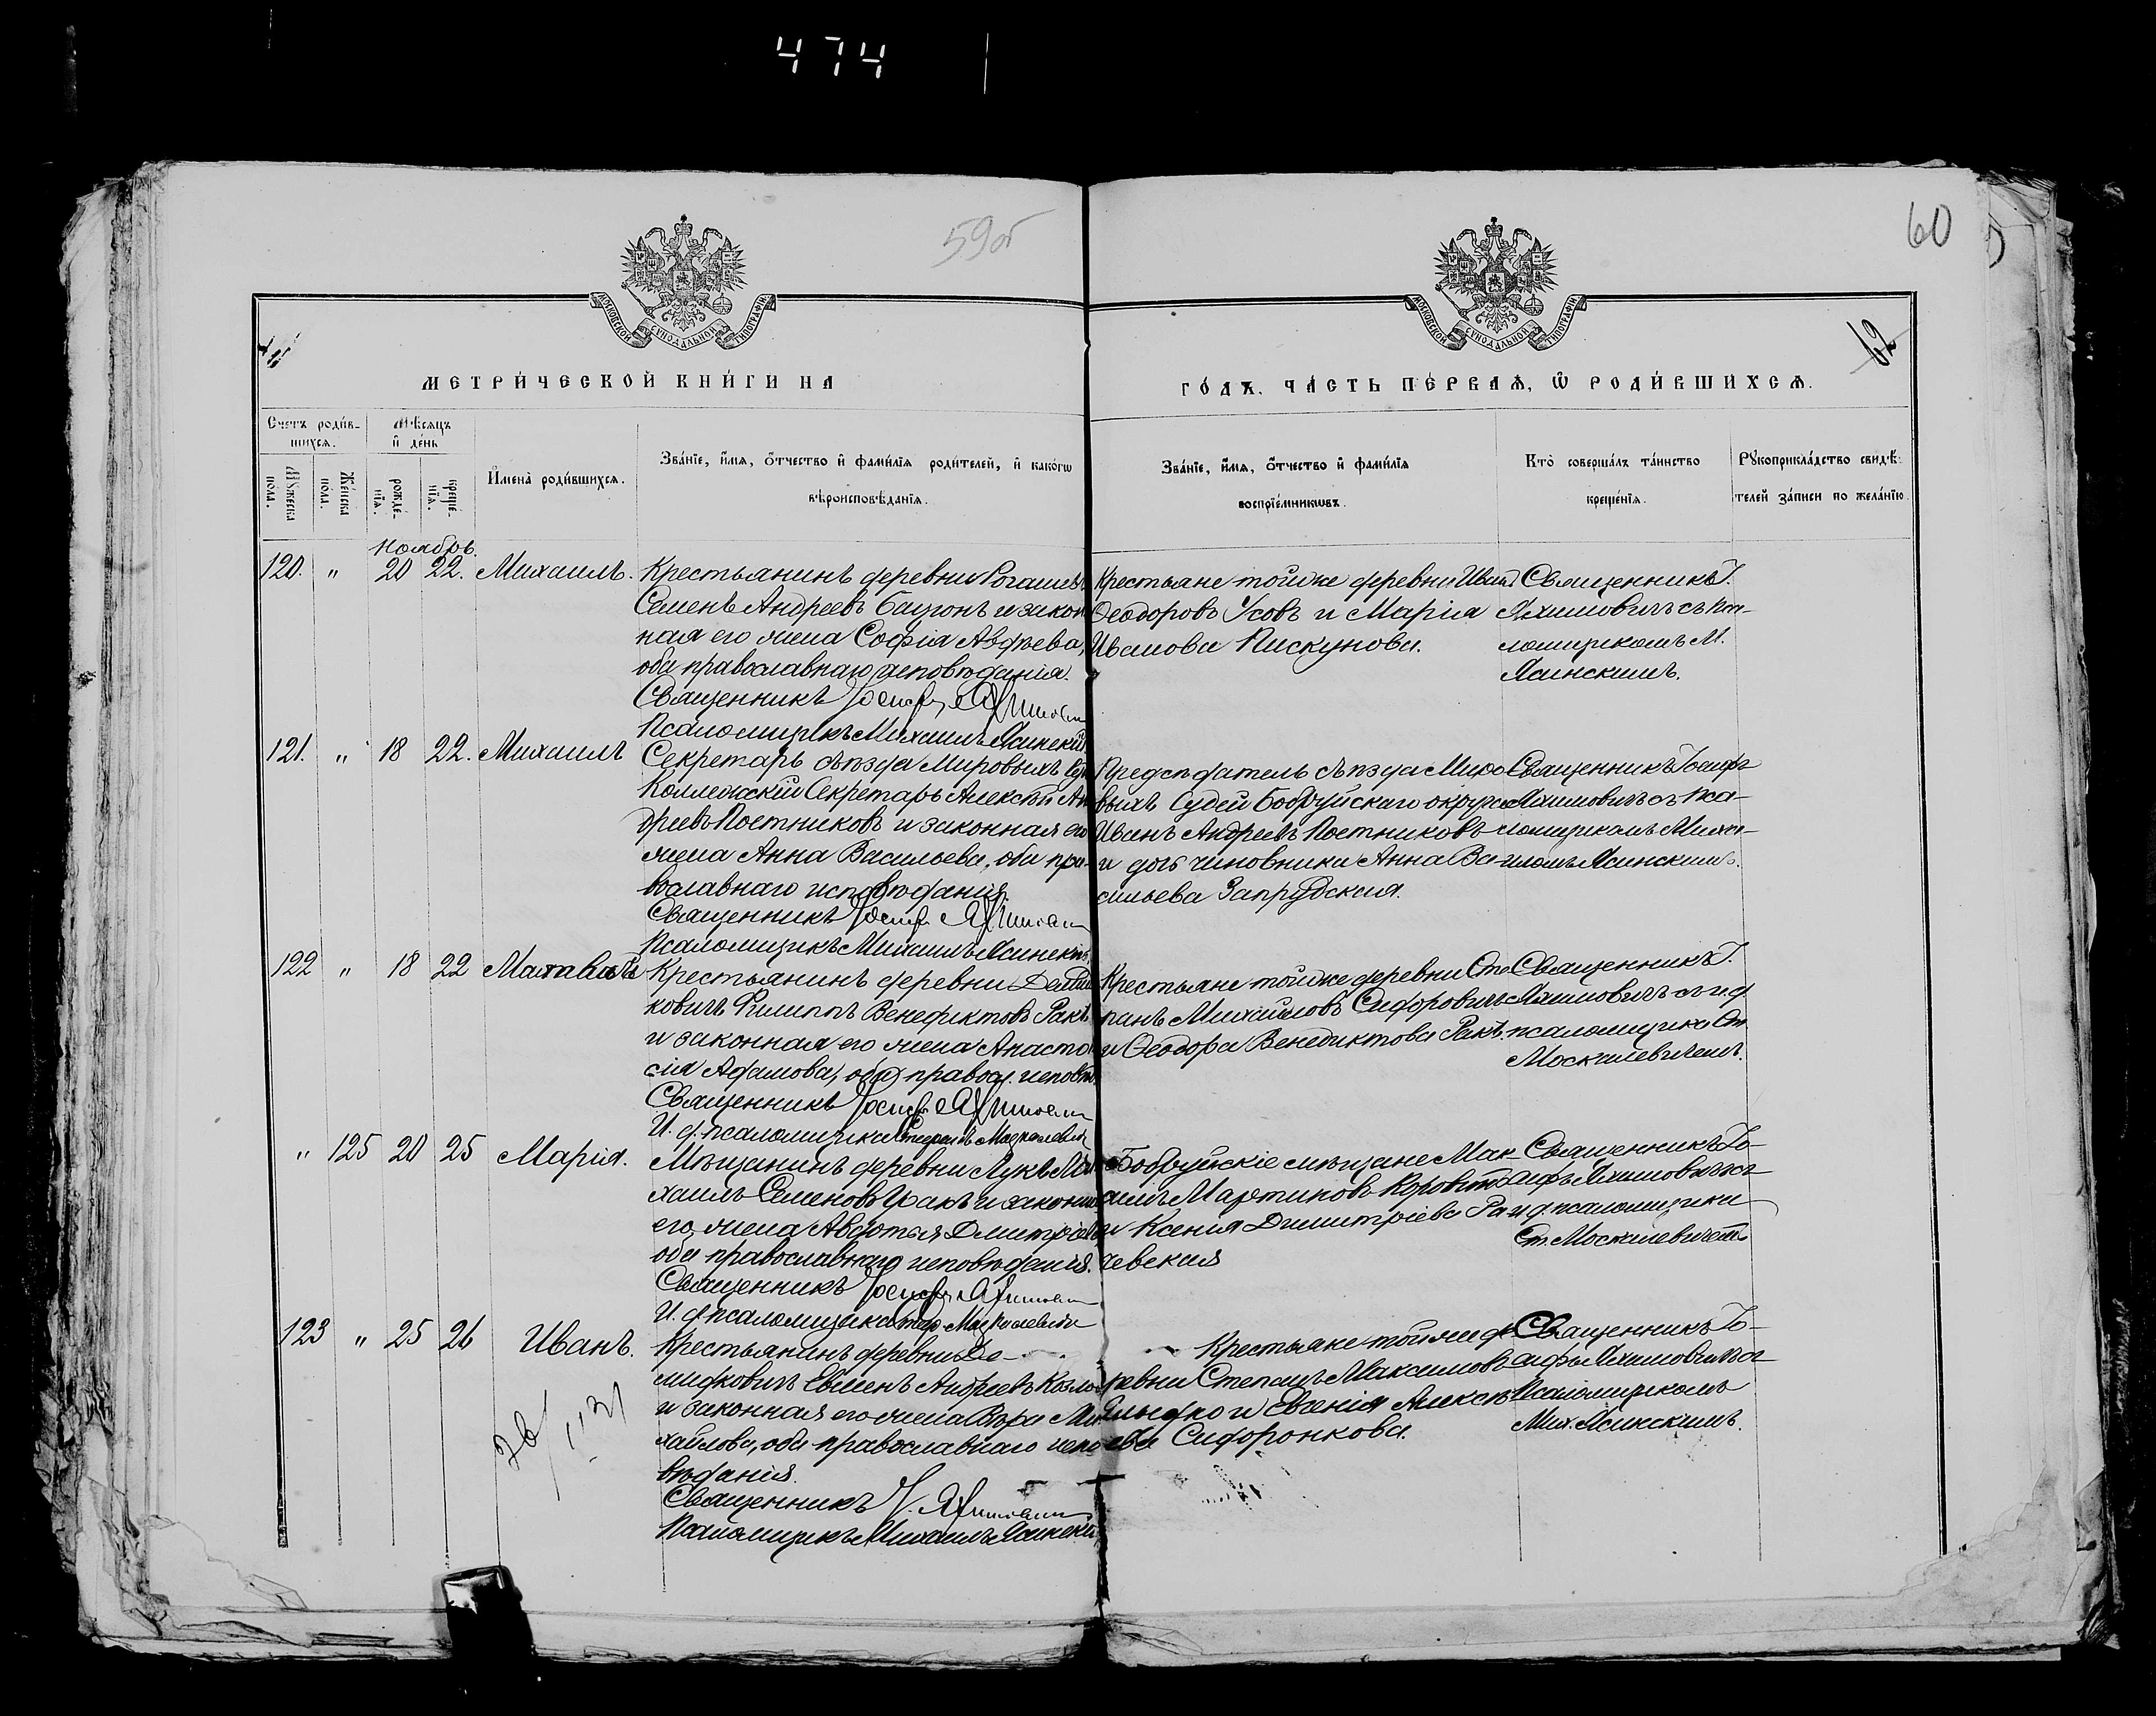 474
59об
60
МОСКОВСКОЙ СУНОДАЛЬНОЙ ТИПОГРАФІИ
МОСКОВСКОЙ СУНОДАЛЬНОЙ ТИПОГРАФІИ
62
МЕТРИ́ЧЕСКОЙ КНИ́ГИ НА
ГО́ДЪ, ЧА́СТЬ ПЕ́РВАѦ, Ѡ҆ РОДИ́ВШИХСѦ.
Счетъ роди́в-
шихсѧ.
Мѣ́сѧцъ
и҆ де́нь
Мꙋ́жеска
по́ла.
Же́нска
по́ла.
рожде́-
нїѧ.
креще́-
нїѧ.
И҆мена̀ роди́вшихсѧ.
Зва́нїе, и҆́мѧ, ѻ҆́тчество и҆ фами́лїѧ роди́телей, и҆ како́гѡ
вѣроисповѣ́данїѧ.
Зва́нїе, и҆́мѧ, ѻ҆́тчество и҆ фами́лїѧ
воспрїе́мникѡвъ.
Кто̀ соверша́лъ та́инство
креще́нїѧ.
Рꙋкоприкла́дство свидѣ́-
телей за́писи по жела́нїю.
Ноябрь.
120. " 20 22. Михаилъ.
Крестьянинъ деревни
Семенъ Андреевъ и закон
ная его жена Софія Авдѣева,
оба православнаго исповѣданія.
Священникъ Іосифъ
Псаломщикъ Михаилъ Ясинскій
Крестьяне тойже деревни Иванъ
Ѳеодоровъ Усовъ и Марія
Иванова Пискунова.
Священникъ І.
Яхимовичъ съ пса-
ломщикомъ М.
Ясинскимъ.
121. " 18 22. Михаилъ
Секретарь съѣзда Мировыхъ Суд
Коллежскій Секретарь Алексѣй Ан
дреевъ Постниковъ и законная его
жена Анна Васильева, оба пра-
вославнаго исповѣданія.
Священникъ Іосифъ
Псаломщикъ Михаилъ Ясинскій.
Предсѣдатель съѣзда Миро
выхъ Судей Бобруйскаго округа
Иванъ Андреевъ Постниковъ
и дочь чиновника Анна Ва
сильева Запрудская.
Священникъ Іосифъ
Яхимовичъ съ пса-
ломщикомъ Миха-
иломъ Ясинскимъ.
122 " 18 22 Матвѣй
Крестьянинъ деревни Демид
ковичъ Филиппъ Венедиктовъ Ракъ
и законная его жена Анаста
сія Адамова, оба правосл. исповѣд.
Священникъ Іосифъ
И. д. псаломщика Москалевичъ
Крестьяне тойже деревни Сте
панъ Михайловъ Сидоровичъ
и Ѳеодора Венедиктова Ракъ.
Священникъ І.
Яхимовичъ съ и. д.
псаломщика Ст.
Москалевичемъ.
" 125 20 25 Марія.
Мѣщанинъ деревни Лукъ Ми
хаилъ Семеновъ и законная
его жена Авдотья Дмитріева
оба православнаго исповѣданія.
Священникъ Іосифъ
И. д. псаломщика Москалевичъ
Бобруйскіе мѣщане Мак
симъ Мартиновъ
и Ксенія Димитріева Ра
чевская
Священникъ Іо-
сифъ Яхимовичъ съ
и. д. псаломщика
Ст. Москалевичемъ.
123 " 25 26 Иванъ.
Крестьянинъ деревни Де-
мидковичъ Евменъ Андреевъ
и законная его жена Вѣра Ми
хайлова, оба православнаго испо
вѣданія.
Священникъ І.
Псаломщикъ Михаилъ Ясинскій
Крестьяне тойже де
ревни Степанъ Максимовъ
и Евгенія Алексѣ
ева Сидоронкова.
Священникъ Іо-
сифъ Яхимовичъ съ
Псаломщикомъ
Мих. Ясинскимъ.